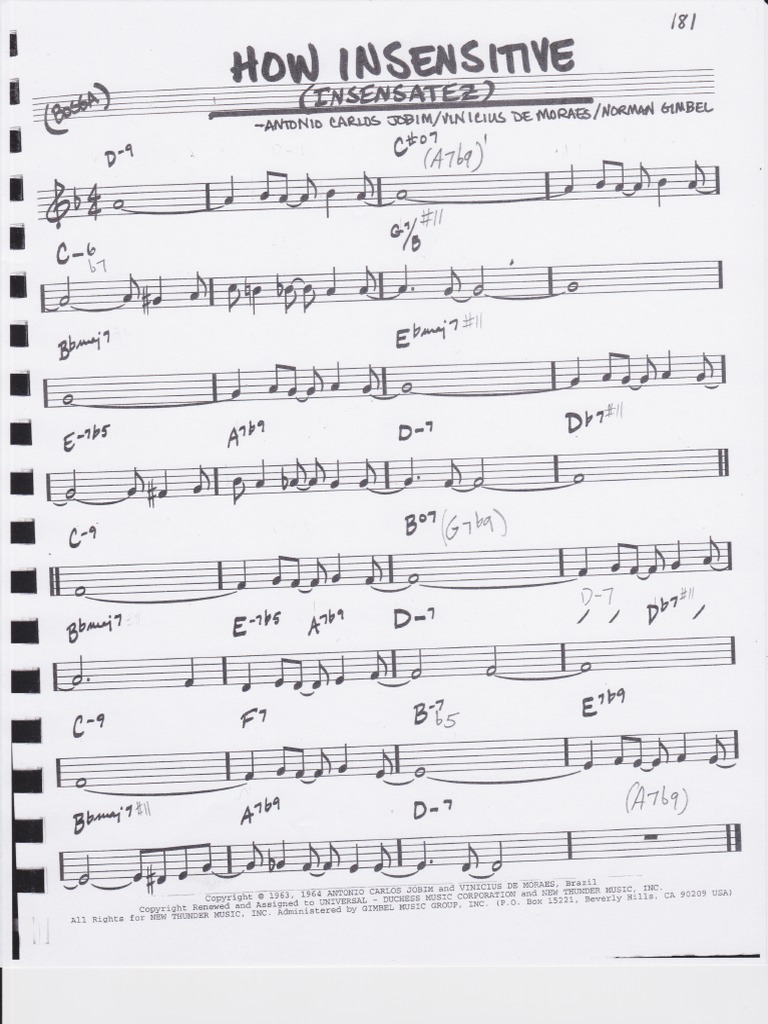 181
HOW INSENSITIVE
(BOSSA) (INSENSATEZ)
-ANTONIO CARLOS JOBIM/VINICIUS DE MORAES/NORMAN GIMBEL
D-9 C#o7 (A7b9)
4/4
C-6 b7 G7/B #11
Bbmaj7 Ebmaj7 #11
E-7b5 A7b9 D-7 Db7#11
C-9 Bo7 (G7b9)
Bbmaj7 E-7b5 A7b9 D-7 D-7 Db7#11
C-9 F7 B-7 b5 E7b9
Bbmaj7#11 A7b9 D-7 (A7b9)
Copyright © 1963, 1964 ANTONIO CARLOS JOBIM and VINICIUS DE MORAES, Brazil
Copyright Renewed and Assigned to UNIVERSAL - DUCHESS MUSIC CORPORATION and NEW THUNDER MUSIC, INC.
All Rights for NEW THUNDER MUSIC, INC. Administered by GIMBEL MUSIC GROUP, INC. (P.O. Box 15221, Beverly Hills, CA 90209 USA)